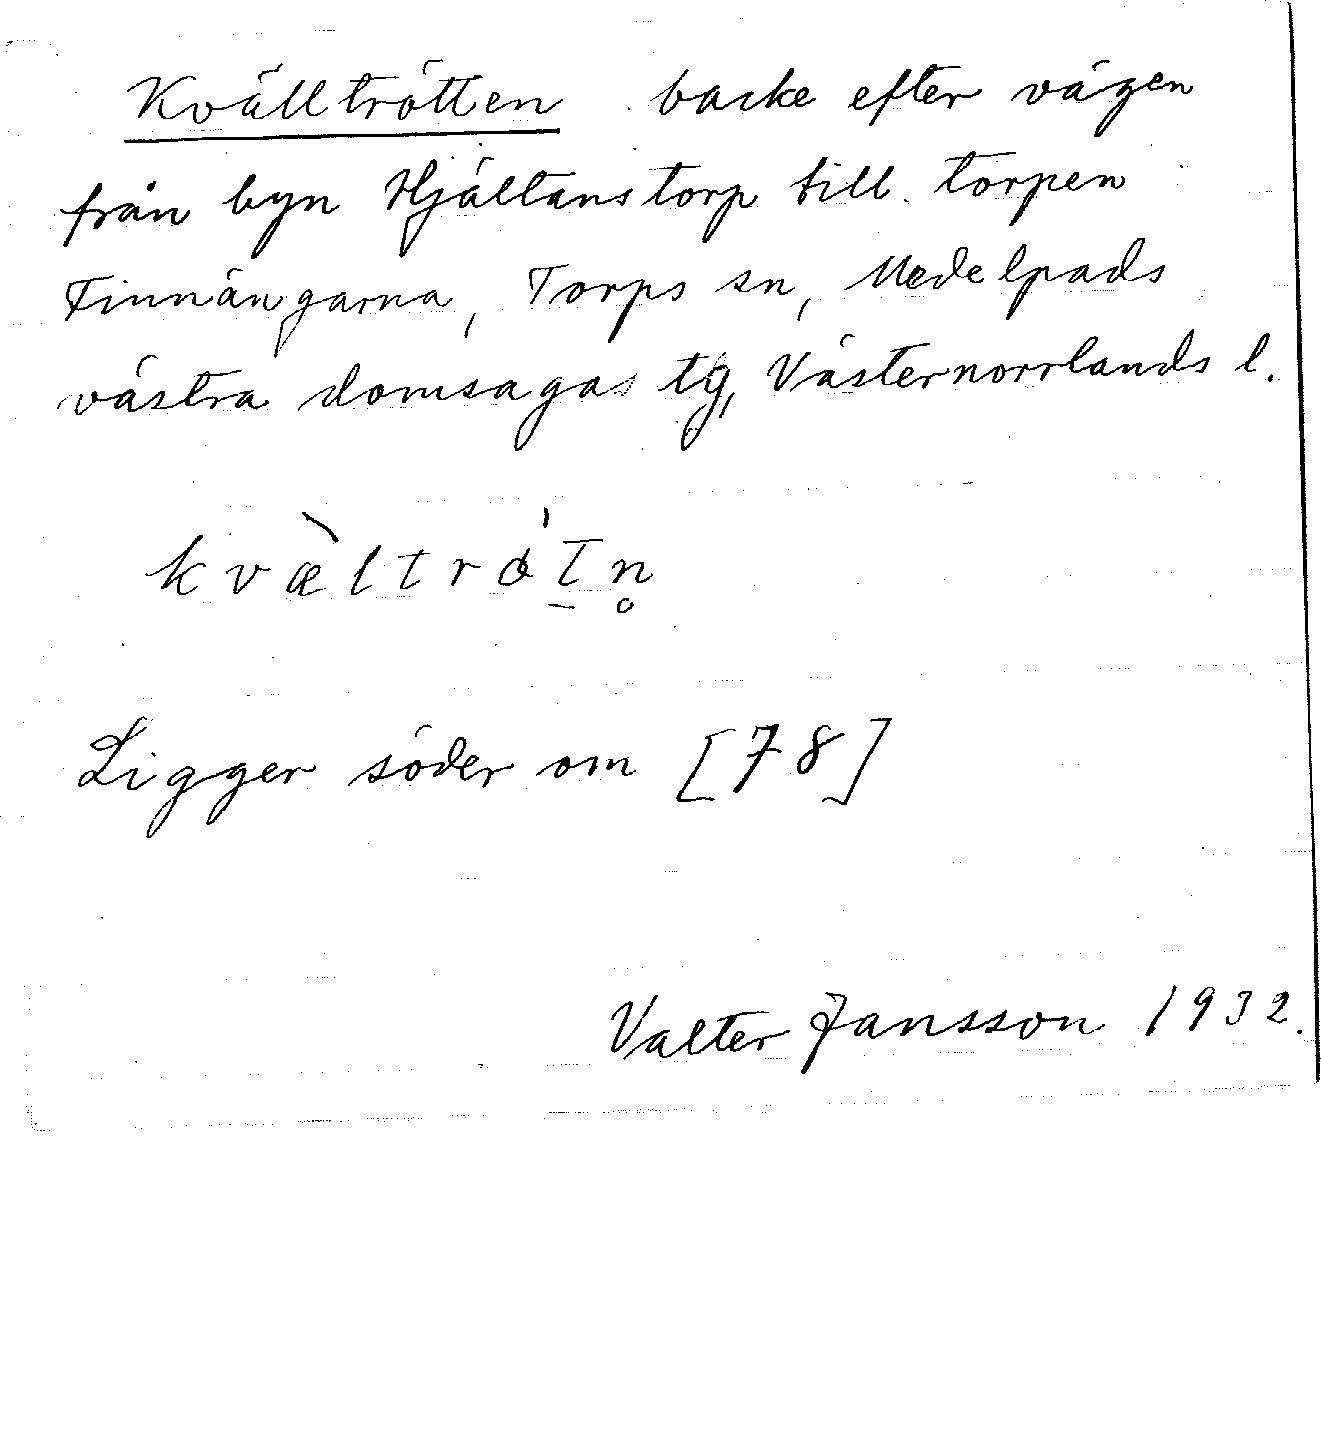 Kvälltrötten backe efter vägen
från byn Hjältanstorp till torpen
Finnängarna, Torps sn, Medelpads
västra domsagas tg, Västernorrlands l.
kvæ̀ltrǿt̠n̥
Ligger söder om [78]
Valter Jansson 1932.